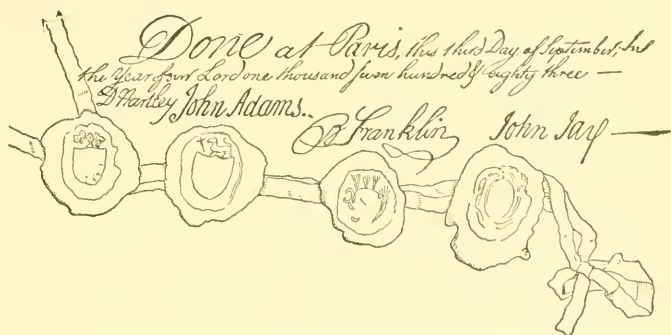 Done at Paris, this third Day of September, In
the Year of our Lord one thousand seven hundred & eighty three —
D Hartley John Adams.. B Franklin John Jay —